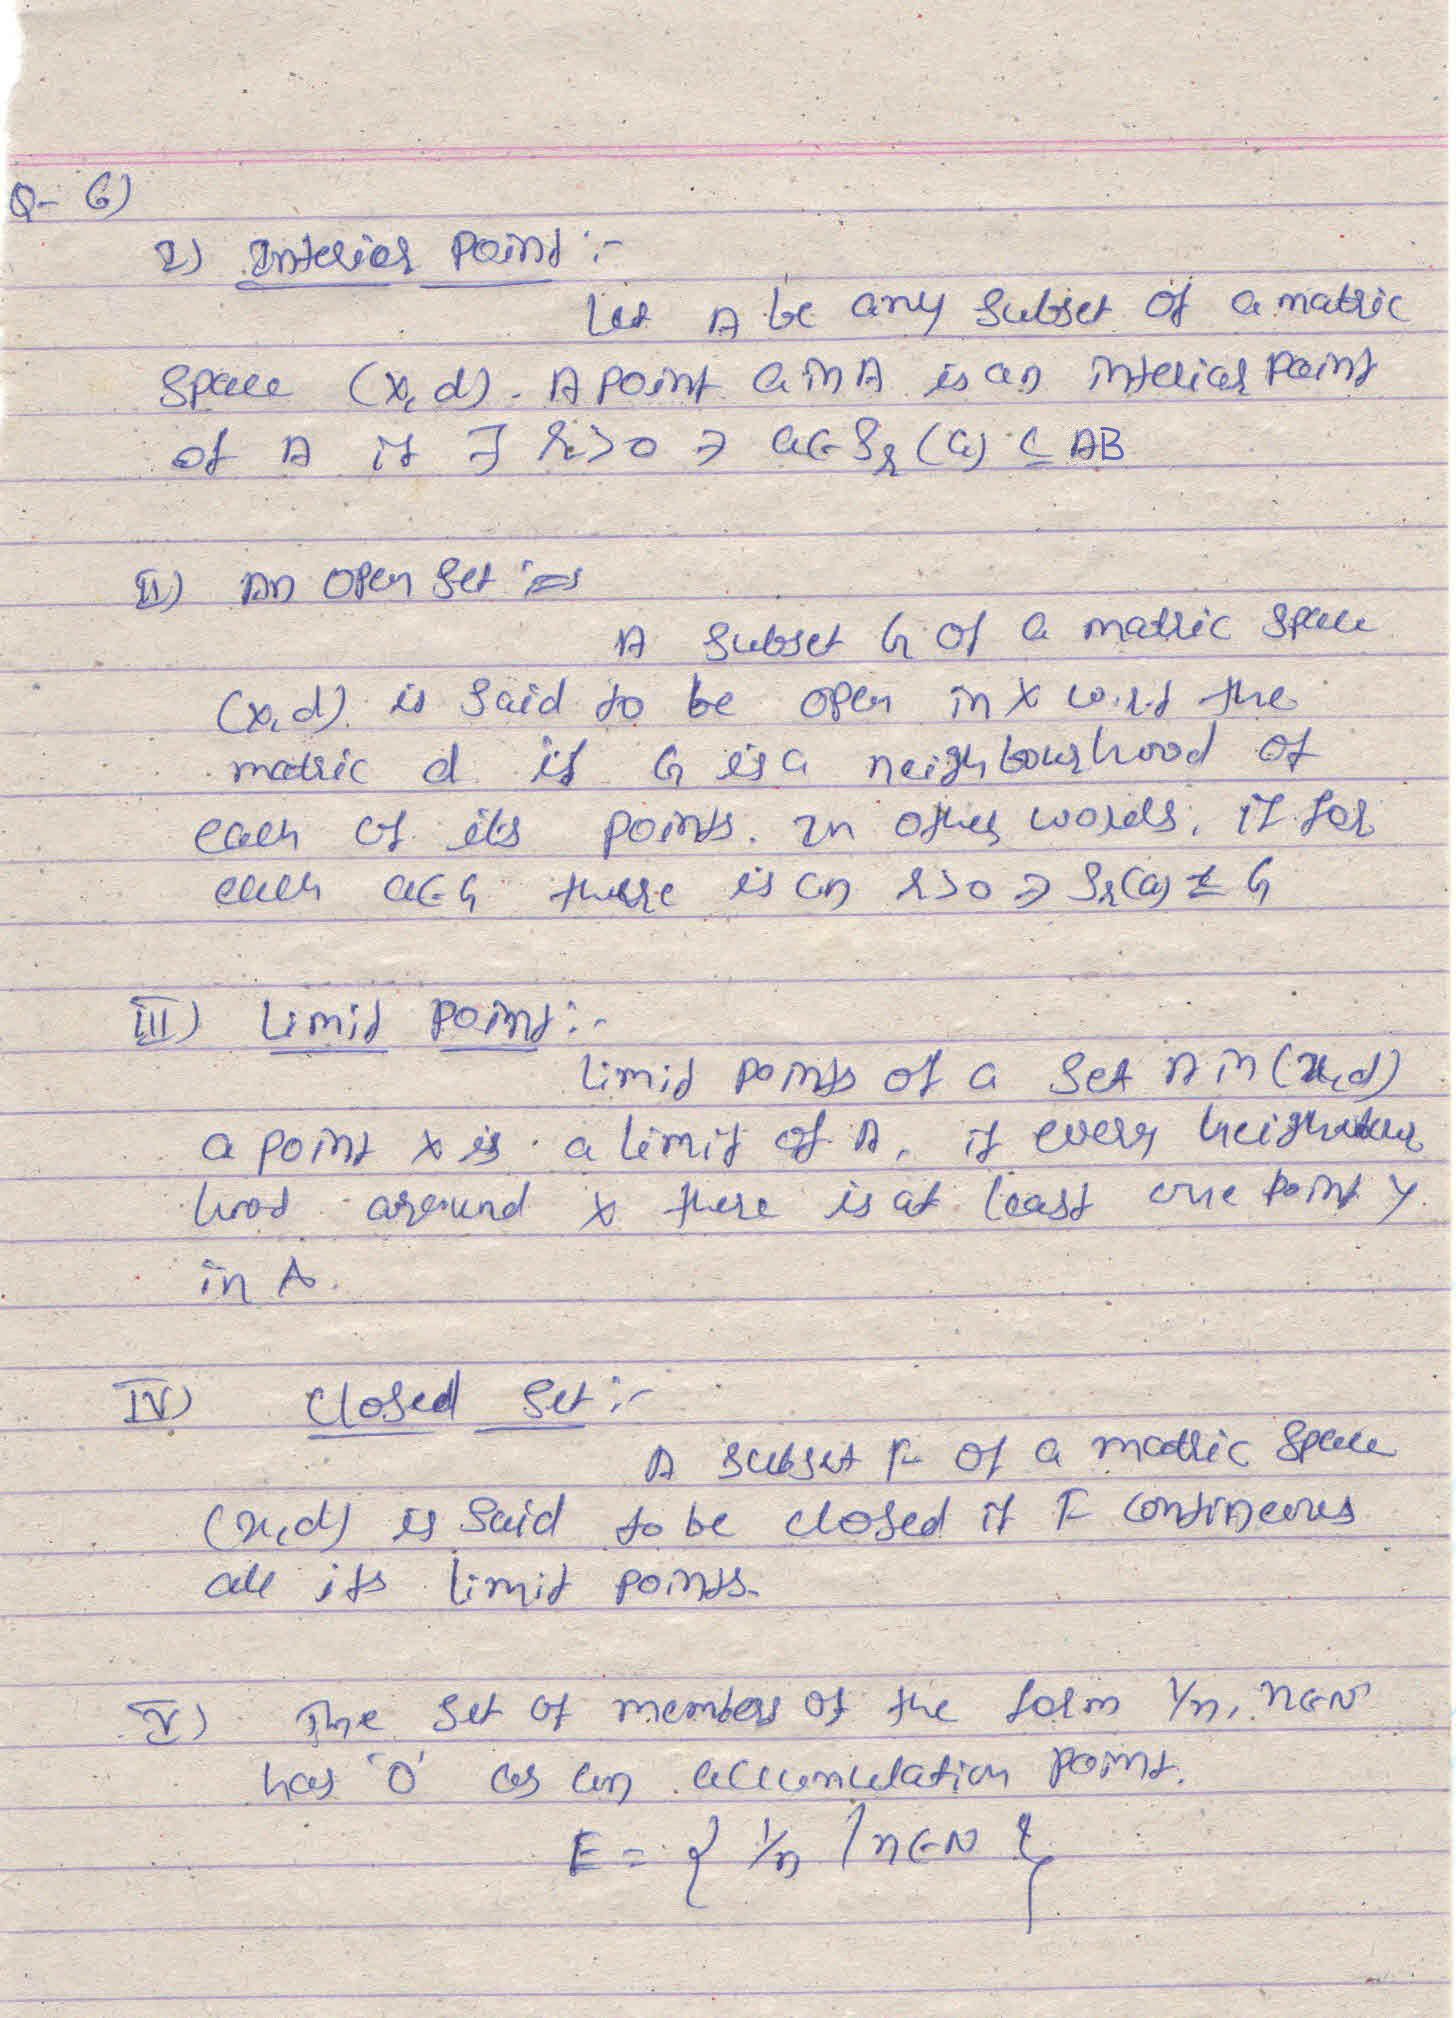 Q- 6)
I) Interior Point :-
Let A be any subset of a matric
space (x, d). A point a in A is an interior point
of A if ∃ r>0 ∋ a∈Sr(a) ⊆ AB
II) An open set :-
A subset G of a matric space
(x, d). is said to be open in X w.r.t the
matric d if G is a neighbourhood of
each of its points. In other words, if for
each a∈G there is an r>0 ∋ Sr(a) ⊆ G
III) Limit Point :-
Limit points of a set A in (x, d)
a point x is a limit of A, if every neighbour
hood around x there is at least one point y
in A.
IV) Closed Set :-
A subset F of a matric space
(x, d) is said to be closed if F contineous
all its limit points.
V) The set of members of the form 1/n, n∈N
has '0' as an accumulation point.
E = { 1/n / n∈N }